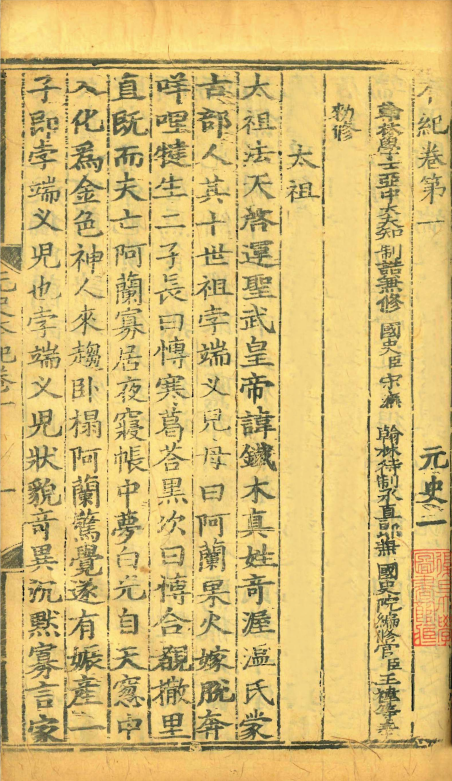 本紀卷第一 元史一
翰林學士亞中大夫知 制誥兼修 國史臣宋濂 翰林待制承直郎兼 國史院編修官臣王禕等奉
勑修
太祖
太祖法天啓運聖武皇帝諱鐵木真姓奇渥溫氏蒙
古部人其十世祖孛端义兒母曰阿蘭果火嫁脱奔
咩哩犍生二子長曰愽寒葛荅黑次曰愽合覩撤里
直既而夫亡阿蘭寡居夜寢帳中夢白光自天窻中
入化爲金色神人來趨卧榻阿蘭驚覺遂有娠產一
子即孛端义児也孛端义児狀貌竒異沉默寡言家
元史本紀卷一 一